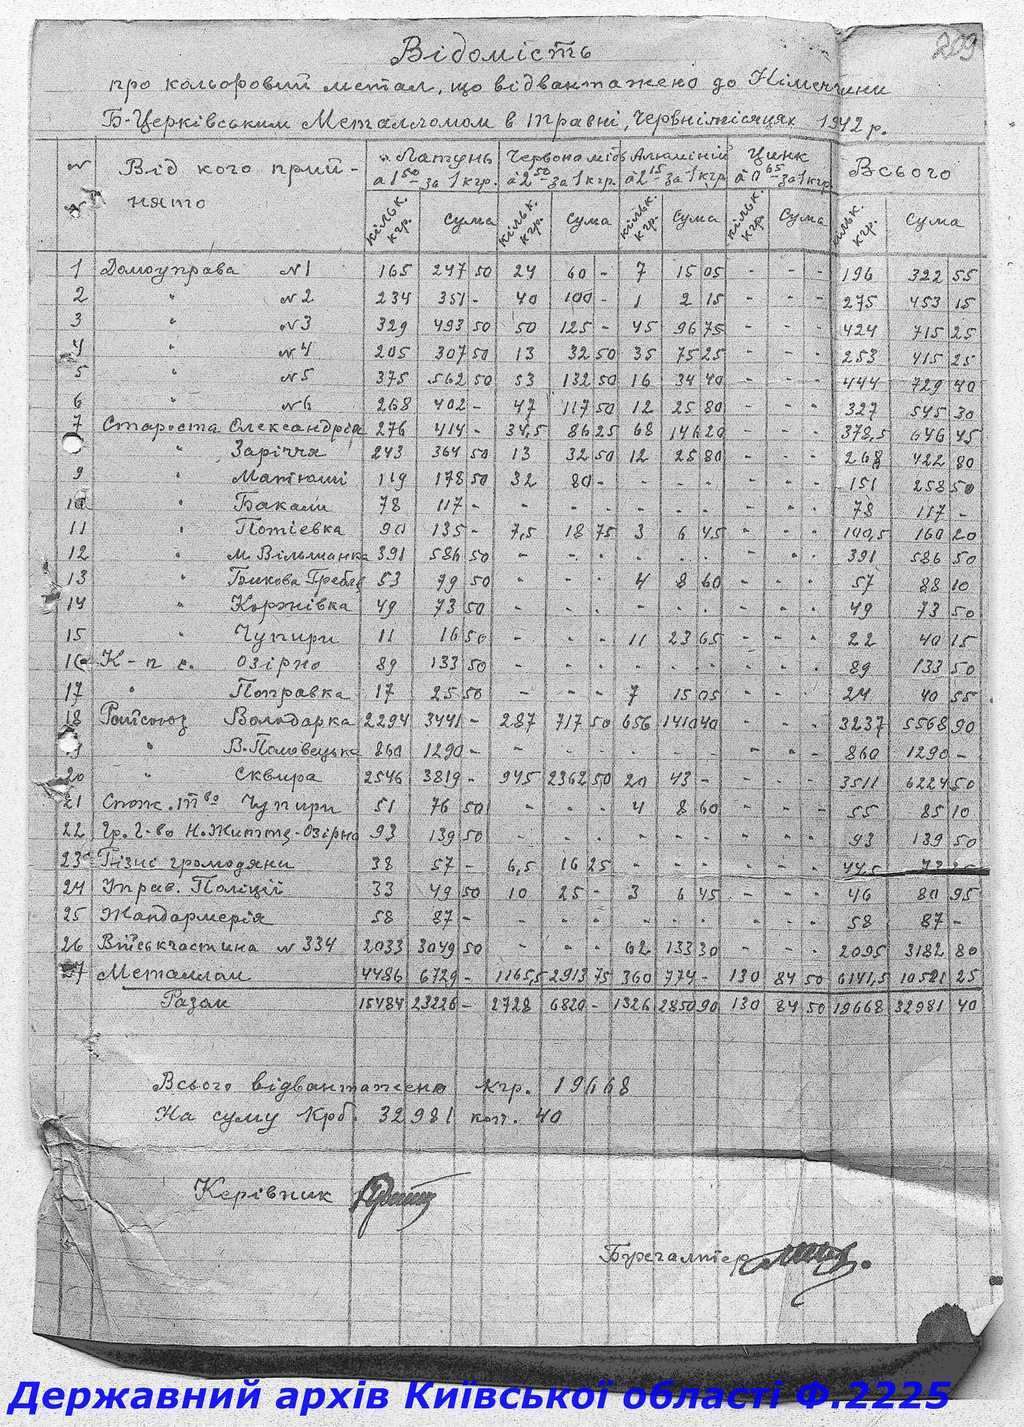 209
Відомість
про кольоровий метал, що відвантажено до Німеччини
Б-Церківським Металломом в травні, червні місяцях 1942 р.
№ Від кого прий- Латунь Червона мідь Алюміній Цинк Всього
нято à 1 50 за 1 кгр. à 2 50 за 1 кгр. à 2 15 за 1 кгр. à 0 65 за 1 кгр.
кільк. кгр. сума кільк. кгр. сума кільк. кгр. сума кільк. кгр. сума кільк. кгр. сума
1 Домоуправа №1 165 247 50 24 60 - 7 15 05 - - - 196 322 55
2 " №2 234 351 - 40 100 - 1 2 15 - - - 275 453 15
3 " №3 329 493 50 50 125 - 45 96 75 - - - 424 715 25
4 " №4 205 307 50 13 32 50 35 75 25 - - - 253 415 25
5 " №5 375 562 50 53 132 50 16 34 40 - - - 444 729 40
6 " №6 268 402 - 47 117 50 12 25 80 - - - 327 545 30
7 Староста Олександрія 276 414 - 34,5 86 25 68 146 20 - - - 378,5 646 45
" Заріччя 243 364 50 13 32 50 12 25 80 - - - 268 422 80
9 " Матюші 119 178 50 32 80 - - - - - - - 151 258 50
10 " Бакали 78 117 - - - - - - - - - - 78 117 -
11 " Потіевка 90 135 - 7,5 18 75 3 6 45 - - - 100,5 160 20
12 " М. Вільшанка 391 586 50 - - - - - - - - - 391 586 50
13 " Гребля 53 79 50 - - - 4 8 60 - - - 57 88 10
14 " Коржівка 49 73 50 - - - - - - - - - 49 73 50
15 " Чупири 11 16 50 - - - 11 23 65 - - - 22 40 15
16 К-п с. Озірно 89 133 50 - - - - - - - - - 89 133 50
17 " Поправка 17 25 50 - - - 7 15 05 - - - 24 40 55
18 Райсоюз Володарка 2294 3441 - 287 717 50 656 1410 40 - - - 3237 5568 90
19 " В.-Половецька 860 1290 - - - - - - - - - - 860 1290 -
20 " Сквира 2546 3819 - 945 2362 50 20 43 - - - - 3511 6224 50
21 Спож. т-во Чупири 51 76 50 - - - 4 8 60 - - - 55 85 10
22 Гр. Г-во Н. Життя-Озірно 93 139 50 - - - - - - - - - 93 139 50
23 Різні громодяни 38 57 - 6,5 16 25 - - - - - - 44,5 73 25
24 Управ. Поліції 33 49 50 10 25 - 3 6 45 - - - 46 80 95
25 Жандармерія 58 87 - - - - - - - - - - 58 87 -
26 Військчастина №334 2033 3049 50 - - - 62 133 30 - - - 2095 3182 80
27 Металлом 4486 6729 - 1165,5 2913 75 360 774 - 130 84 50 6141,5 10501 25
Разом 15484 23226 - 2728 6820 - 1326 2850 90 130 84 50 19668 32981 40
Всього відвантажено кгр. 19668
На суму Крб. 32981 коп. 40
Керівник
Бухгалтер
Державний архів Київської області Ф.2225